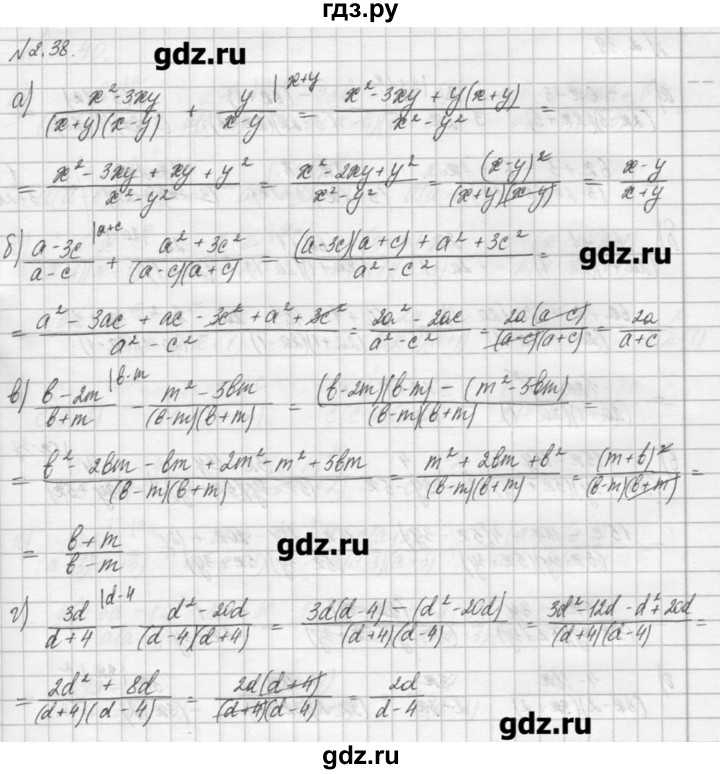 гдз.ру
№2.38.
gdz.ru
а) \frac{x² - 3xy}{(x+y)(x-y)} + \frac{y}{x-y} |x+y = \frac{x² - 3xy + y(x+y)}{x² - y²} =
= \frac{x² - 3xy + xy + y²}{x² - y²} = \frac{x² - 2xy + y²}{x² - y²} = \frac{(x-y)²}{(x+y)(x-y)} = \frac{x-y}{x+y}
б) \frac{a-3c}{a-c} |a+c + \frac{a² + 3c²}{(a-c)(a+c)} = \frac{(a-3c)(a+c) + a² + 3c²}{a² - c²} =
gdz.ru
= \frac{a² - 3ac + ac - 3c² + a² + 3c²}{a² - c²} = \frac{2a² - 2ac}{a² - c²} = \frac{2a(a-c)}{(a-c)(a+c)} = \frac{2a}{a+c}
в) \frac{b-2m}{b+m} |b-m - \frac{m² - 5bm}{(b-m)(b+m)} = \frac{(b-2m)(b-m) - (m² - 5bm)}{(b-m)(b+m)} =
= \frac{b² - 2bm - bm + 2m² - m² + 5bm}{(b-m)(b+m)} = \frac{m² + 2bm + b²}{(b-m)(b+m)} = \frac{(m+b)²}{(b-m)(b+m)} =
= \frac{b+m}{b-m}
gdz.ru
г) \frac{3d}{d+4} |d-4 - \frac{d² - 20d}{(d-4)(d+4)} = \frac{3d(d-4) - (d² - 20d)}{(d+4)(d-4)} = \frac{3d² - 12d - d² + 20d}{(d+4)(d-4)} =
= \frac{2d² + 8d}{(d+4)(d-4)} = \frac{2d(d+4)}{(d+4)(d-4)} = \frac{2d}{d-4}
gdz.ru
gdz.ru